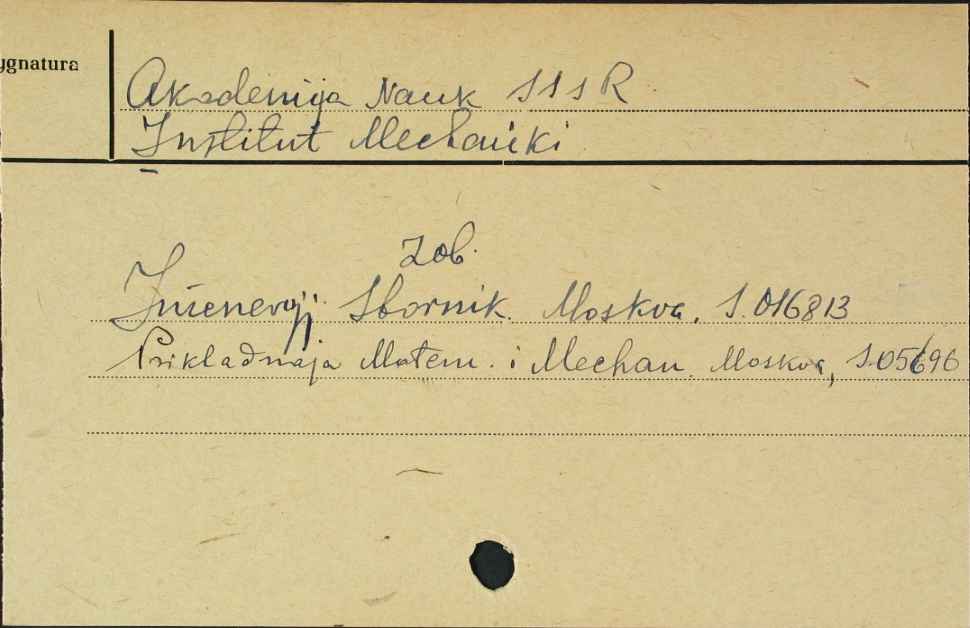 ygnatura
Akademija Nauk SSSR
Institut Mechaniki
Zob.
Inženernyj Sbornik. Moskva. S.016813
Prikladnaja Matem. i Mechan. Moskva, S.05696